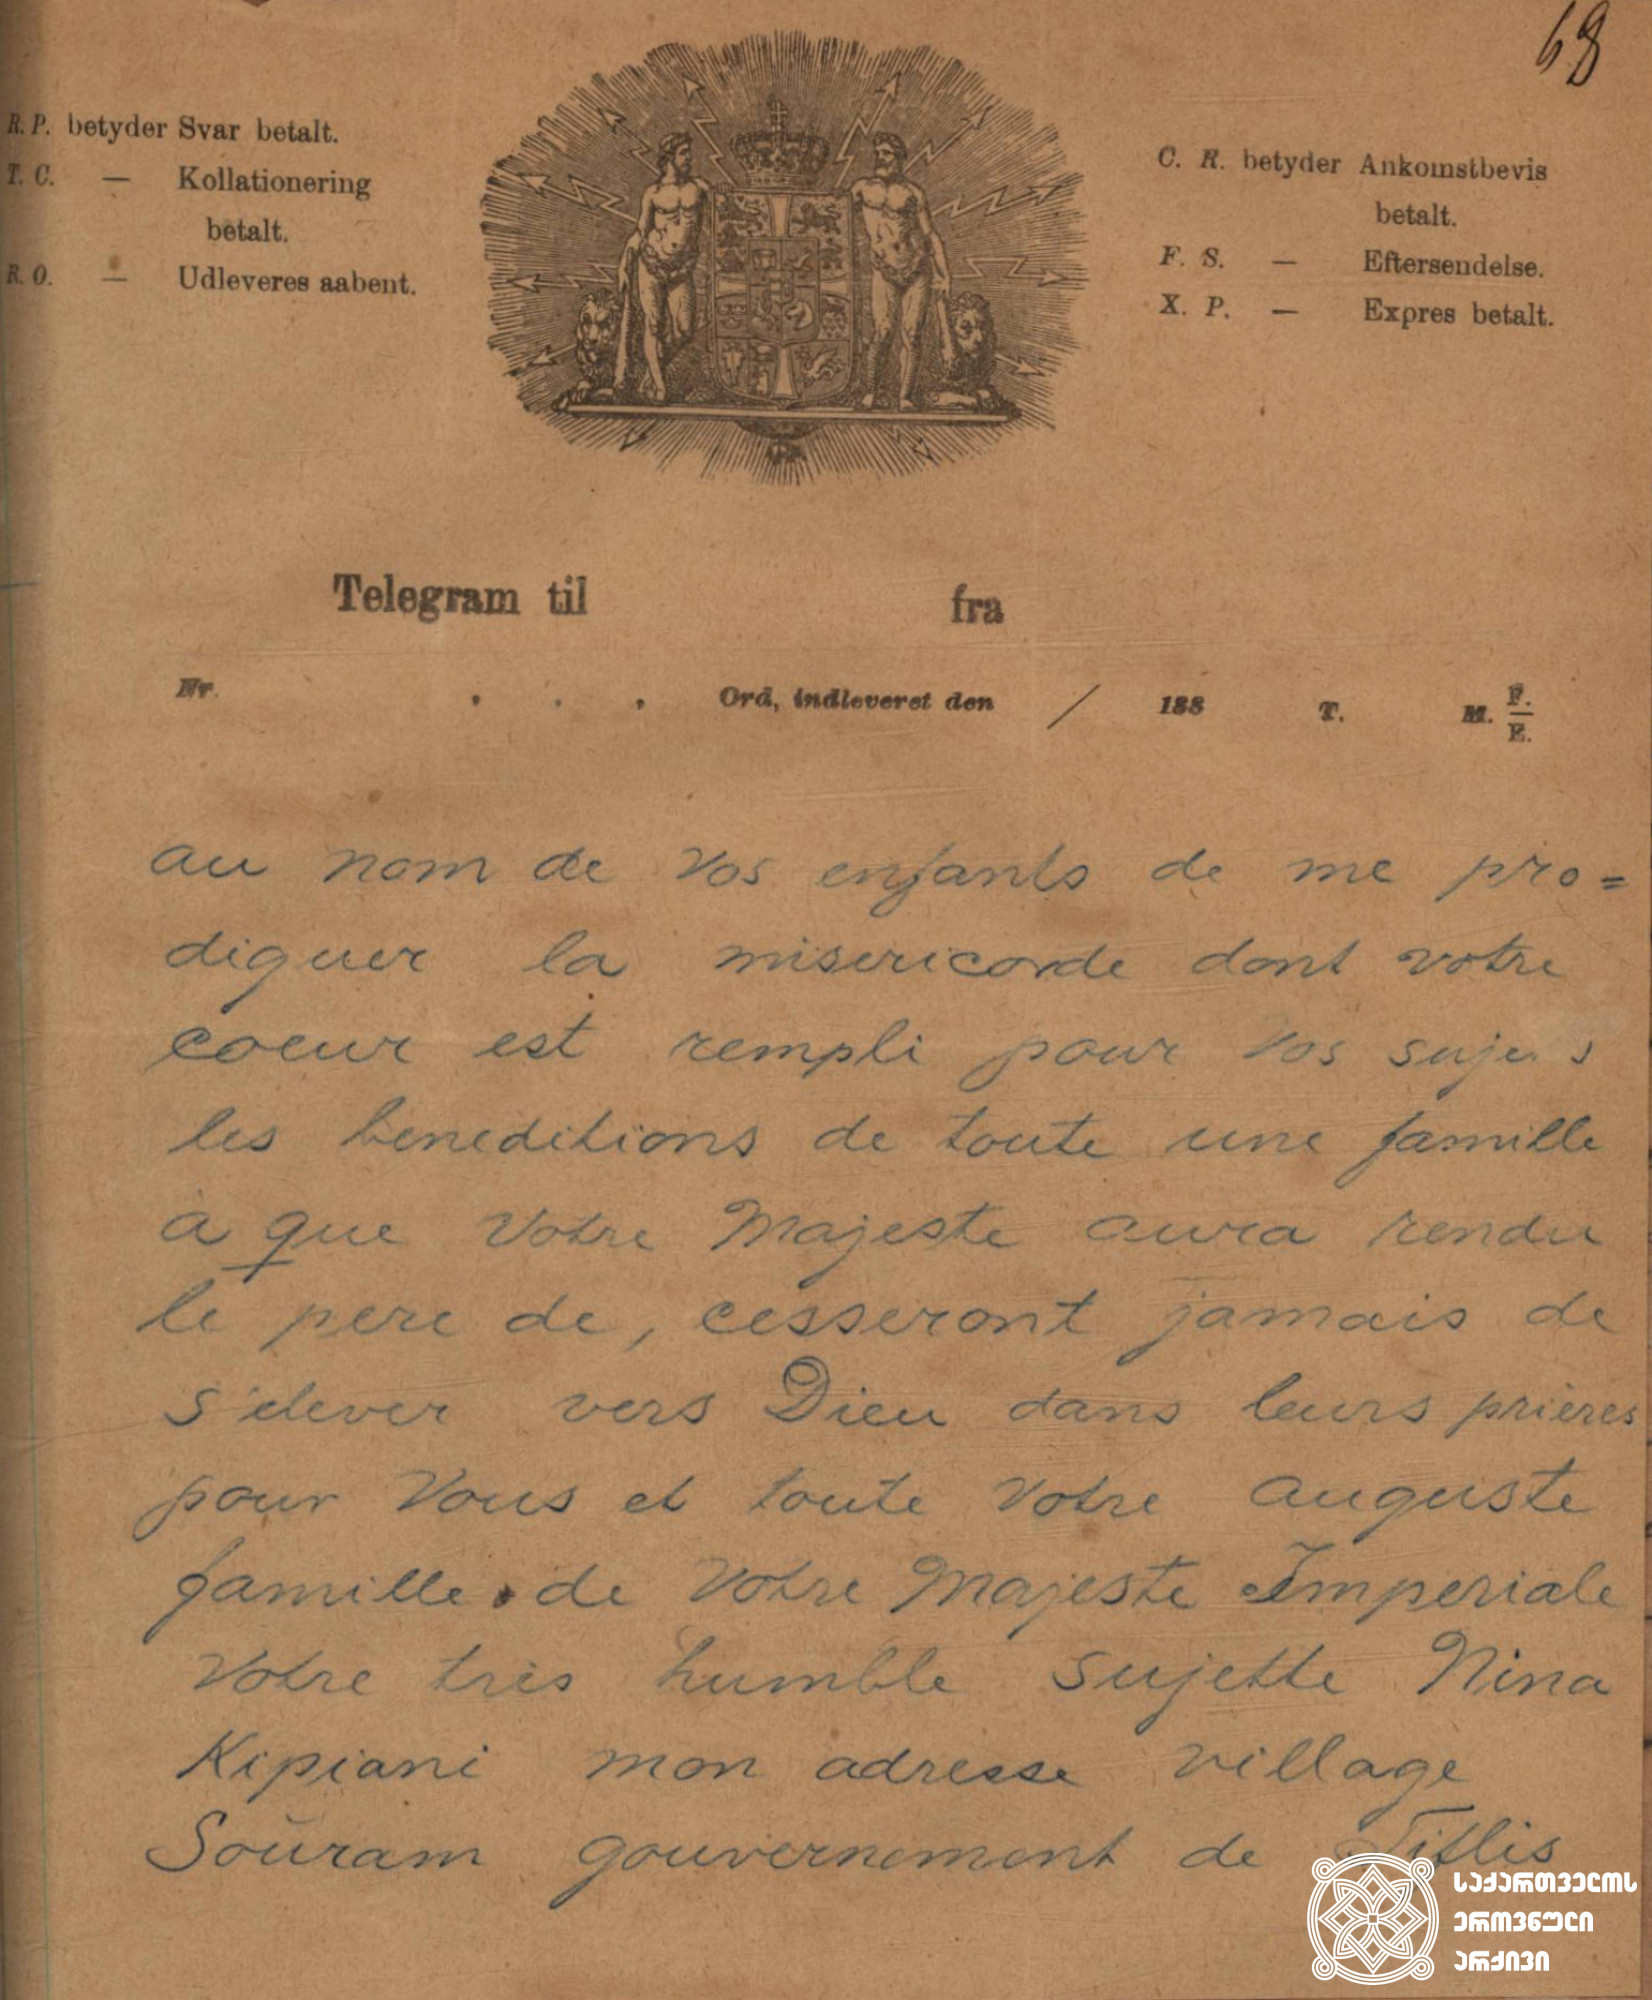 68
R. P. betyder Svar betalt.
T. C. — Kollationering
betalt.
R. O. — Udleveres aabent.
C. R. betyder Ankomstbevis
betalt.
F. S. — Eftersendelse.
X. P. — Expres betalt.
Telegram til fra
Nr. . . . Ord, indleveret den / 188 T. M. F./E.
au nom de vos enfants de me pro=
diguer la misericorde dont votre
coeur est rempli pour vos sujets
les beneditions de toute une famille
à que Votre Majeste aura rendu
le pere de, cesseront jamais de
s'elever vers Dieu dans leurs prières
pour Vous et toute Votre auguste
famille. de Votre Majeste Imperiale
Votre très humble sujette Nina
Kipiani mon adresse village
Soŭram gouvernement de Tiflis
საქართველოს
ეროვნული
არქივი